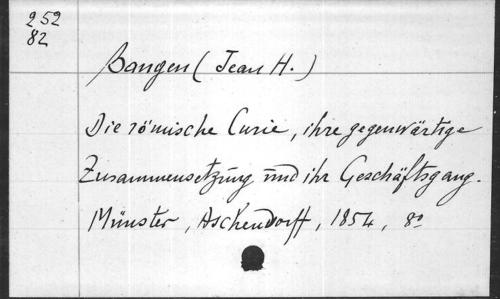 252
82
Bangen (Jean H.)
Die römische Curie, ihre gegenwärtige
Zusammensetzung und ihr Geschäftsgang.
Münster, Aschendorff, 1854, 8º